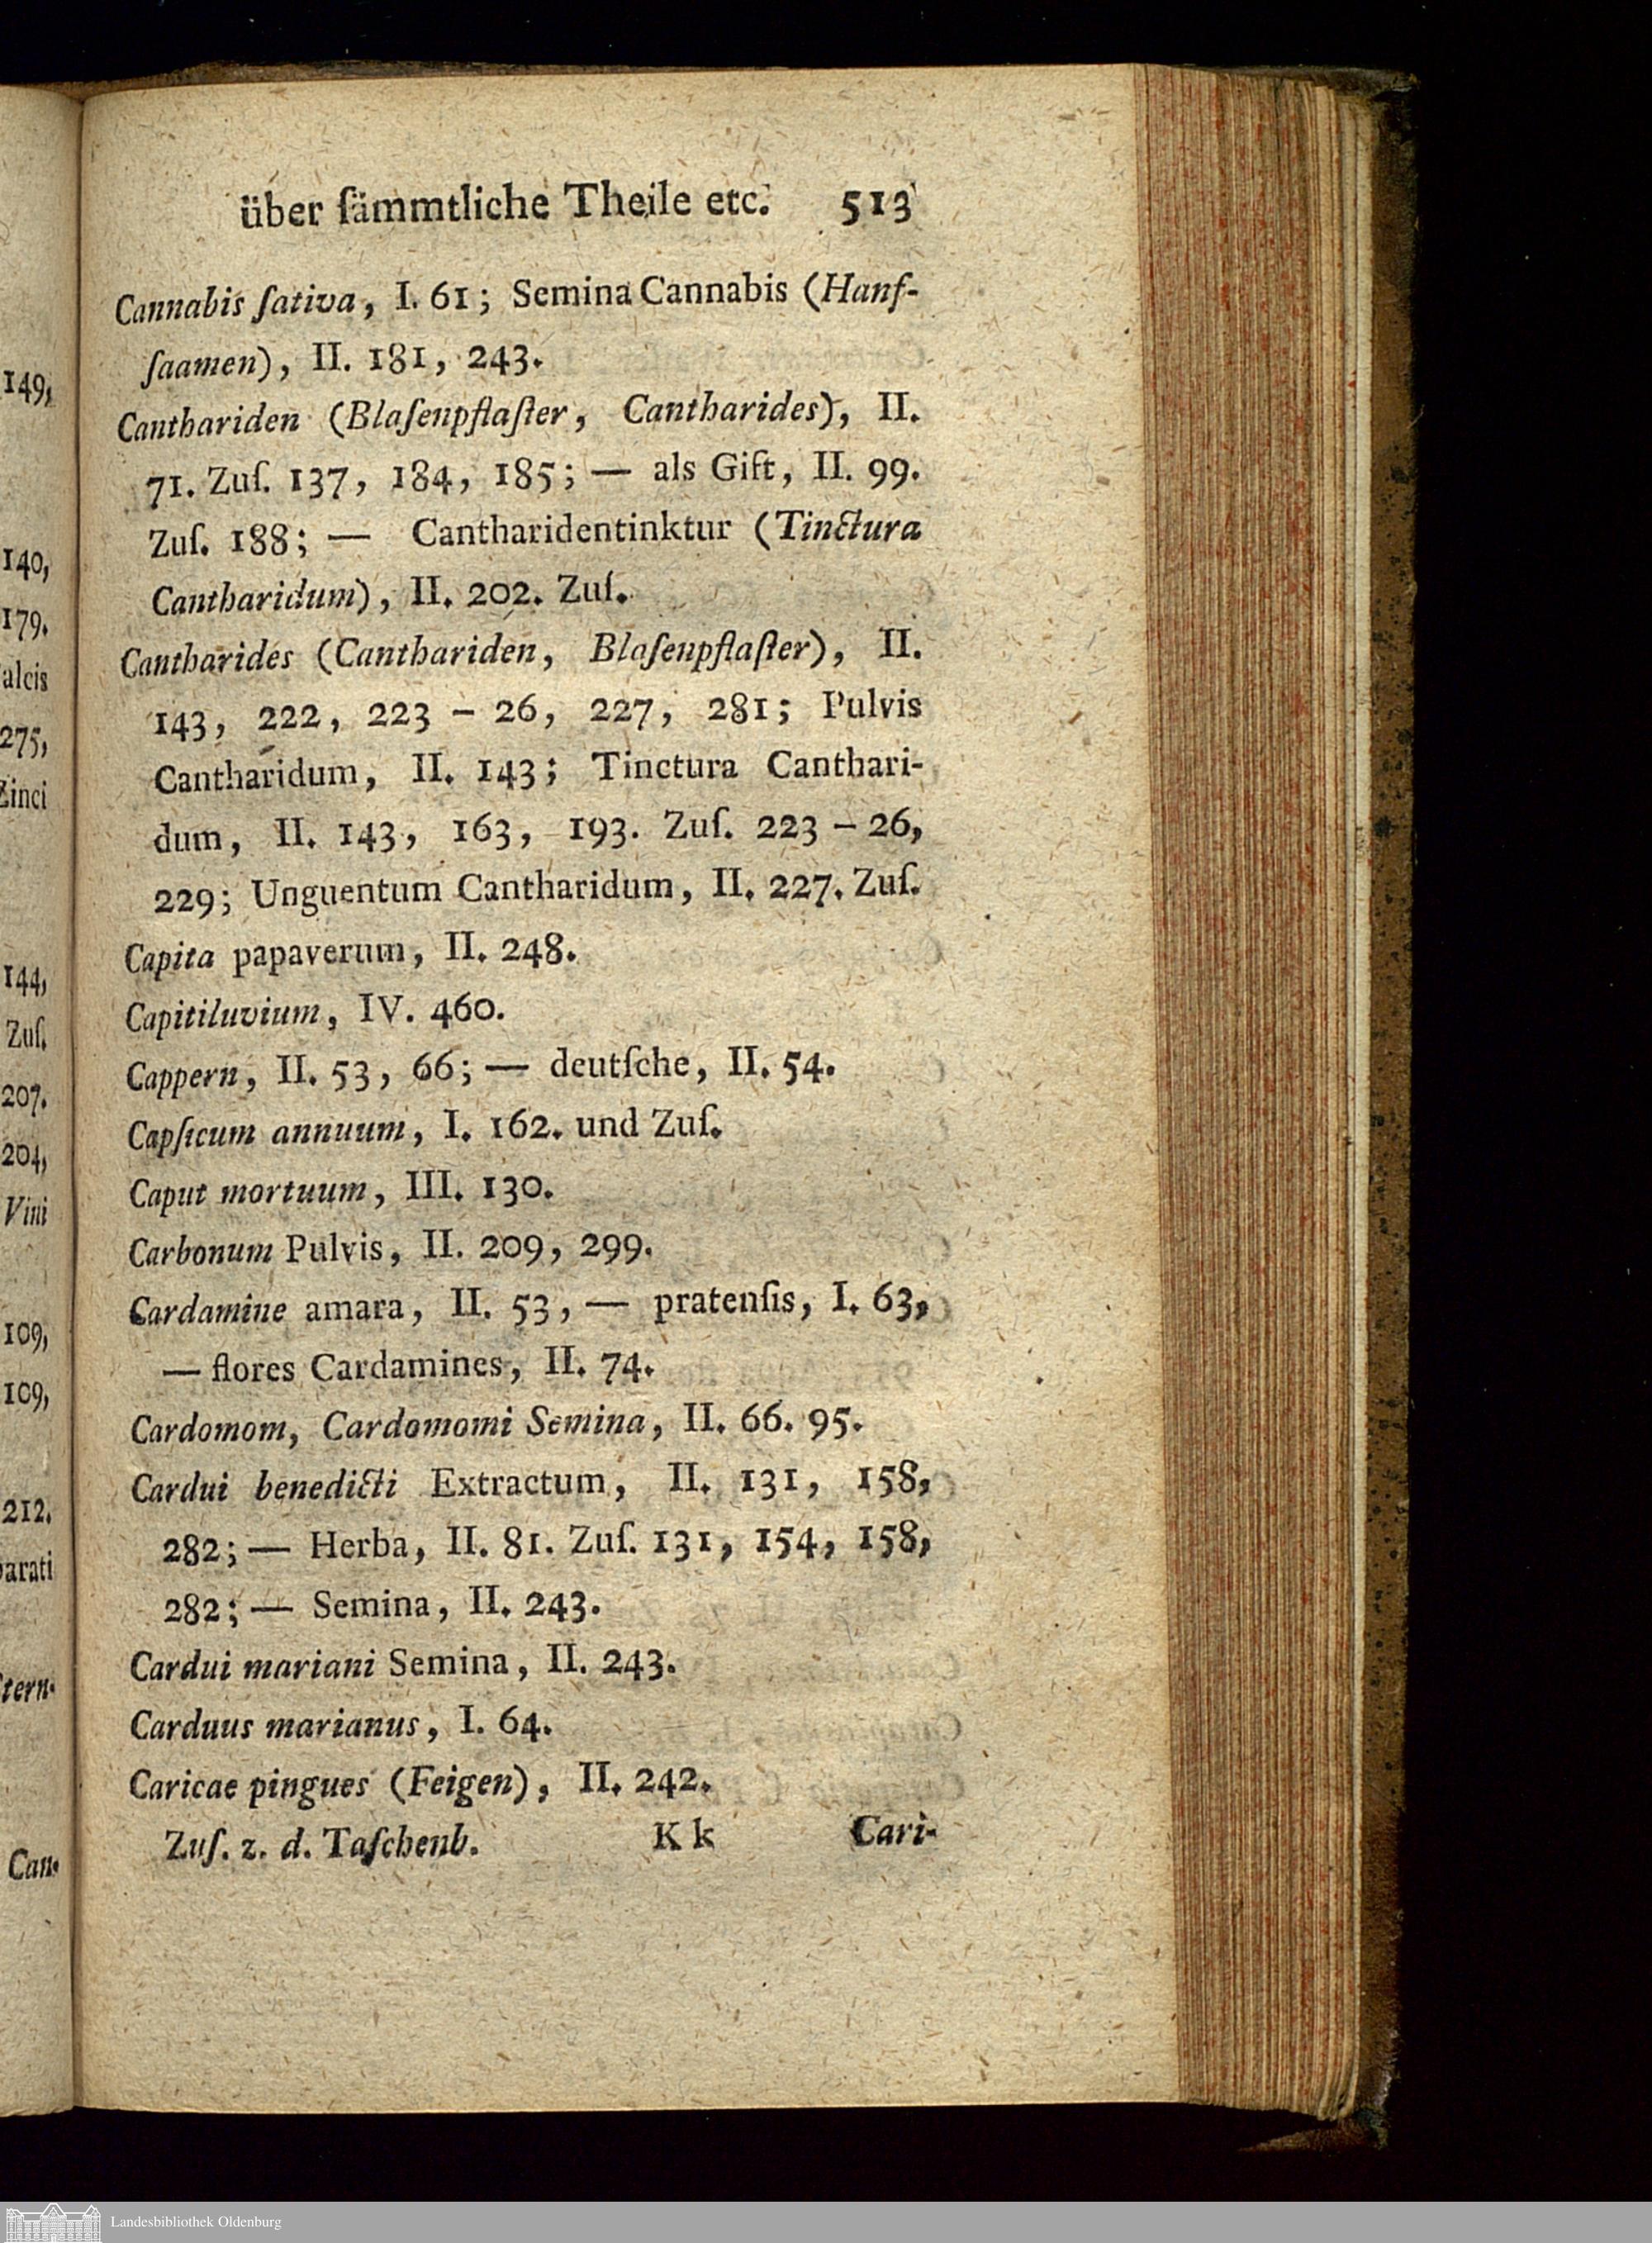 über ſämmtliche Theile etc. 513
Cannabis ſativa, I. 61; Semina Cannabis (Hanf-
ſaamen), II. 181, 243.
Canthariden (Blaſenpflaſter, Cantharides), II.
71. Zuſ. 137, 184, 185; — als Gift, II. 99.
Zuſ. 188; — Cantharidentinktur (Tinctura
Cantharidum), II. 202. Zuſ.
Cantharides (Canthariden, Blaſenpflaſter), II.
143, 222, 223 – 26, 227, 281; Pulvis
Cantharidum, II. 143; Tinctura Canthari-
dum, II. 143, 163, 193. Zuſ. 223 – 26,
229; Unguentum Cantharidum, II. 227. Zuſ.
Capita papaverum, II. 248.
Capitiluvium, IV. 460.
Cappern, II. 53, 66; — deutſche, II. 54.
Capſicum annuum, I. 162. und Zuſ.
Caput mortuum, III. 130.
Carbonum Pulvis, II. 209, 299.
Cardamine amara, II. 53, — pratenſis, I. 63,
— flores Cardamines, II. 74.
Cardomom, Cardomomi Semina, II. 66. 95.
Cardui benedicti Extractum, II. 131, 158,
282; — Herba, II. 81. Zuſ. 131, 154, 158,
282; — Semina, II. 243.
Cardui mariani Semina, II. 243.
Carduus marianus, I. 64.
Caricae pingues (Feigen), II. 242.
Zuſ. z. d. Taſchenb. K k Cari-
149,
140,
179.
alcis
275,
Zinci
144,
Zuſ.
207.
204,
Vini
109,
109,
212.
parati
tern-
Can-
Landesbibliothek Oldenburg